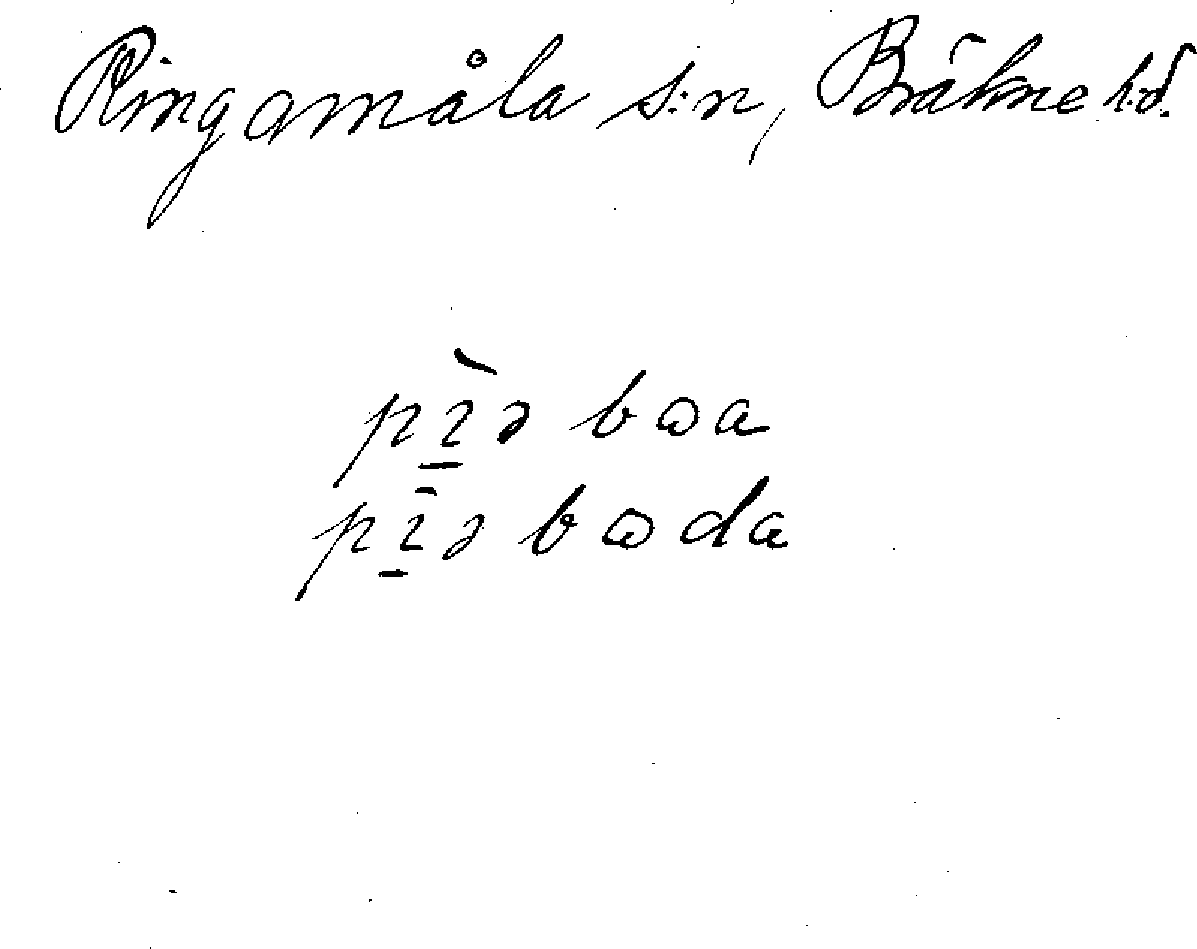 Ringamåla s:n, Bräkne hd.
pɪ̀ə bɷa
pɪ̄ə bɷda